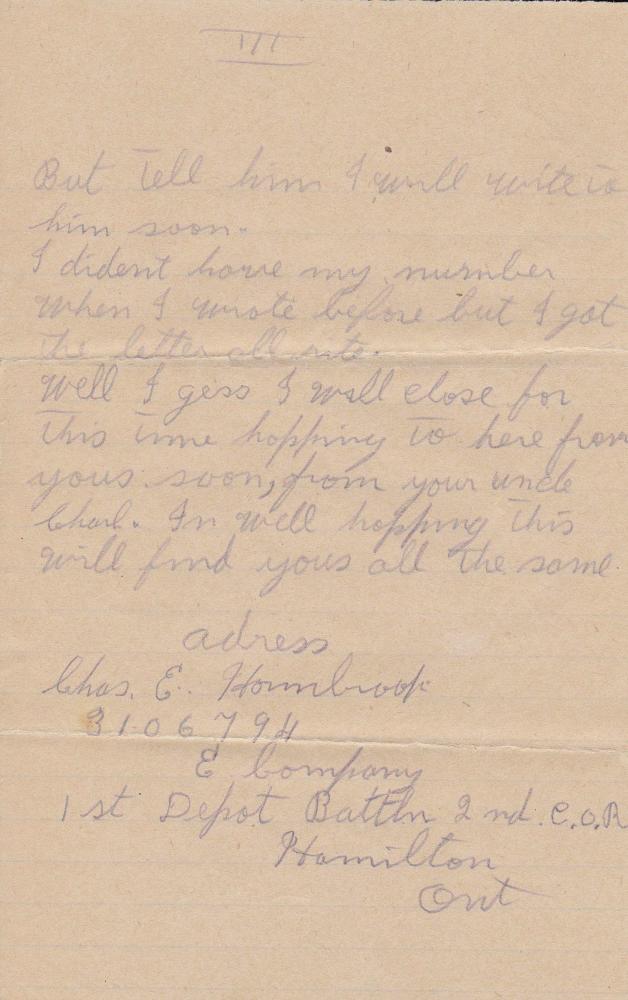 III
But Tell him I will write to
him soon.
I dident have my number
when I wrote before but I got
the letter all rite.
Well I gess I will close for
this time hopping to here from
yous soon, from your uncle
Charl. Im well hopping this
will find yous all the same.
adress
Chas. E. Hornbrook
3106794
E Company
1st Depot Battln 2nd. C.O.R
Hamilton
Ont